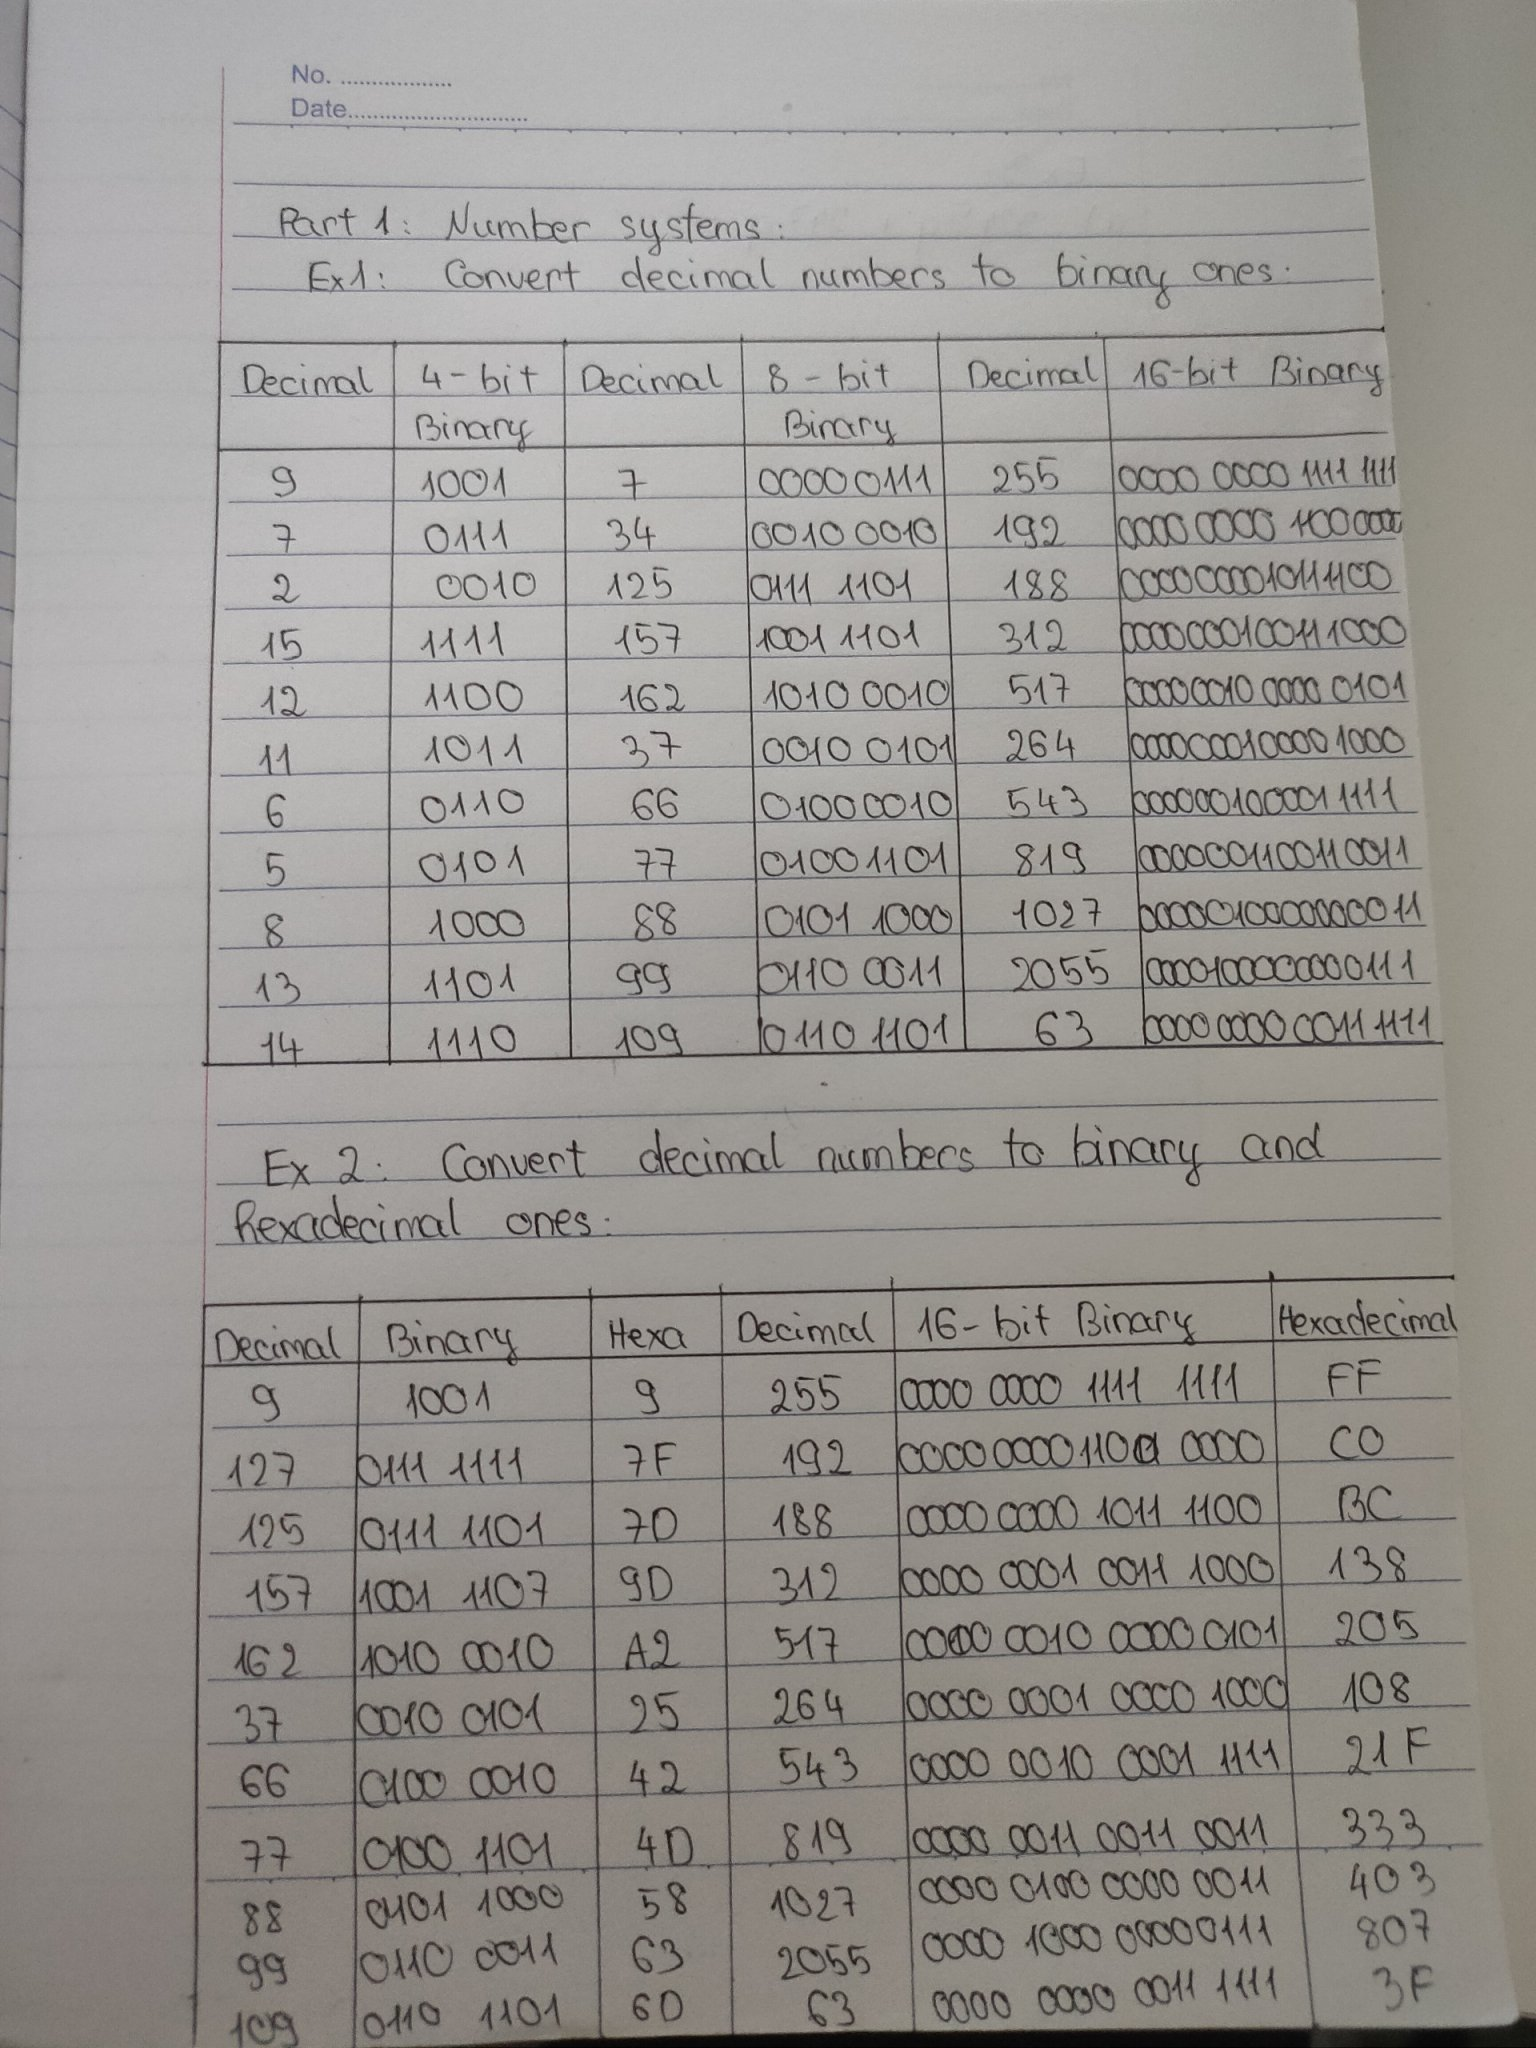 No. ..................
Date.............................
Part 1: Number systems:
Ex1: Convert decimal numbers to binary ones:
Decimal 4-bit Decimal 8-bit Decimal 16-bit Binary
Binary Binary
9 1001 7 0000 0111 255 0000 0000 1111 1111
7 0111 34 0010 0010 192 0000 0000 1100 0000
2 0010 125 0111 1101 188 0000000010111100
15 1111 157 1001 1101 312 0000000100111000
12 1100 162 1010 0010 517 00000010 0000 0101
11 1011 37 0010 0101 264 0000000100001000
6 0110 66 01000010 543 0000001000011111
5 0101 77 01001101 819 0000001100110011
8 1000 88 0101 1000 1027 0000010000000011
13 1101 99 0110 0011 2055 0000100000000111
14 1110 109 0110 1101 63 0000 0000 0011 1111
Ex 2: Convert decimal numbers to binary and
hexadecimal ones:
Decimal Binary Hexa Decimal 16-bit Binary Hexadecimal
9 1001 9 255 0000 0000 1111 1111 FF
127 0111 1111 7F 192 0000 0000 1100 0000 C0
125 0111 1101 7D 188 0000 0000 1011 1100 BC
157 1001 1107 9D 312 0000 0001 0011 1000 138
162 1010 0010 A2 517 0000 0010 0000 0101 205
37 0010 0101 25 264 0000 0001 0000 1000 108
66 0100 0010 42 543 0000 0010 0001 1111 21F
77 0100 1101 4D 819 0000 0011 0011 0011 333
88 0101 1000 58 1027 0000 0100 0000 0011 403
99 0110 0011 63 2055 0000 1000 00000111 807
109 0110 1101 6D 63 0000 0000 0011 1111 3F